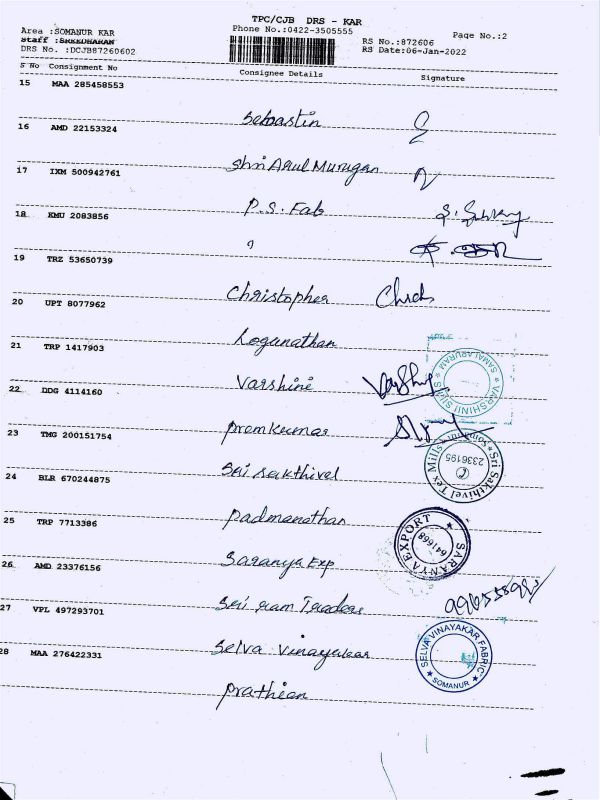 TPC/CJB DRS - KAR
Area :SOMANUR KAR
Phone No.:0422-3505555
Page No.:2
Staff :SREEDHARAN
RS No.:872606
DRS No. :DCJB87260602
RS Date:06-Jan-2022
S No Consignment No Consignee Details Signature
15 MAA 285458553
Sebastin
16 AMD 22153324
Shri Arul Murugan
17 IXM 500942761
P.S. Fab
18 KMU 2083856
19 TRZ 53650739
Christopher Chris
20 UPT 8077962
Logunathan
21 TRP 1417903
Varshine
VARSHINII SILKS SAMALAPURAM
22 DDG 4114160
Premkumar
23 TMG 200151754
Sri Sakthivel
Sri Sakthivel Tex Mills
2336195
24 BLR 670244875
Padmanathan
25 TRP 7713386
Saranya Exp
SARANYA EXPORT
641668
26 AMD 23376156
Sri ram Traders
27 VPL 497293701
Selva Vinayakar
SELVA VINAYAKAR FABRIC
SOMANUR
28 MAA 276422331